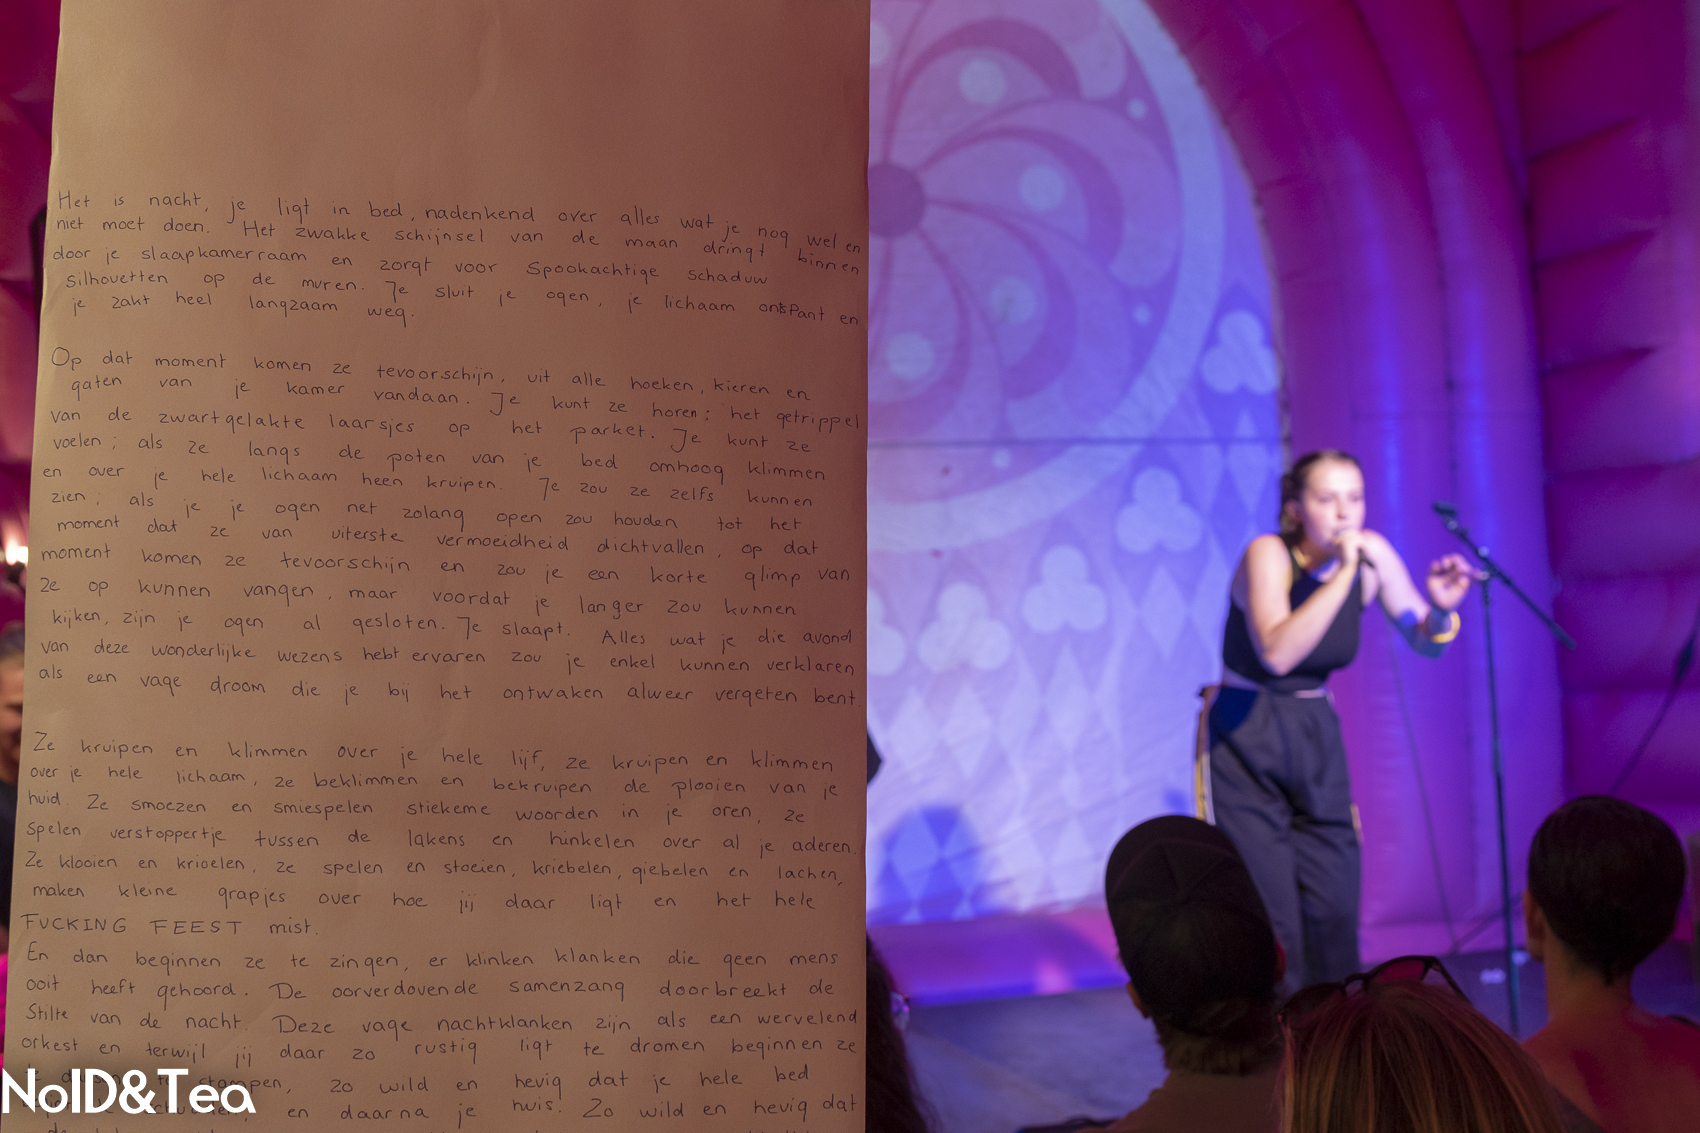 Het is nacht, je ligt in bed, nadenkend over alles wat je nog wel en
niet moet doen. Het zwakke schijnsel van de maan dringt binnen
door je slaapkamerraam en zorgt voor spookachtige schaduw
silhouetten op de muren. Je sluit je ogen, je lichaam ontspant en
je zakt heel langzaam weg.
Op dat moment komen ze tevoorschijn, uit alle hoeken, kieren en
gaten van je kamer vandaan. Je kunt ze horen: het getrippel
van de zwartgelakte laarsjes op het parket. Je kunt ze
voelen; als ze langs de poten van je bed omhoog klimmen
en over je hele lichaam heen kruipen. Je zou ze zelfs kunnen
zien; als je je ogen net zolang open zou houden tot het
moment dat ze van uiterste vermoeidheid dichtvallen, op dat
moment komen ze tevoorschijn en zou je een korte glimp van
ze op kunnen vangen, maar voordat je langer zou kunnen
kijken, zijn je ogen al gesloten. Je slaapt. Alles wat je die avond
van deze wonderlijke wezens hebt ervaren zou je enkel kunnen verklaren
als een vage droom die je bij het ontwaken alweer vergeten bent.
Ze kruipen en klimmen over je hele lijf, ze kruipen en klimmen
over je hele lichaam, ze beklimmen en bekruipen de plooien van je
huid. Ze smoezen en smiespelen stiekeme woorden in je oren, ze
spelen verstoppertje tussen de lakens en hinkelen over al je aderen.
Ze klooien en krioelen, ze spelen en stoeien, kriebelen, giebelen en lachen,
maken kleine grapjes over hoe jij daar ligt en het hele
FUCKING FEEST mist.
En dan beginnen ze te zingen, er klinken klanken die geen mens
ooit heeft gehoord. De oorverdovende samenzang doorbreekt de
stilte van de nacht. Deze vage nachtklanken zijn als een wervelend
orkest en terwijl jij daar zo rustig ligt te dromen beginnen ze
te stampen, zo wild en hevig dat je hele bed
en daarna je huis! Zo wild en hevig dat
NoID&Tea